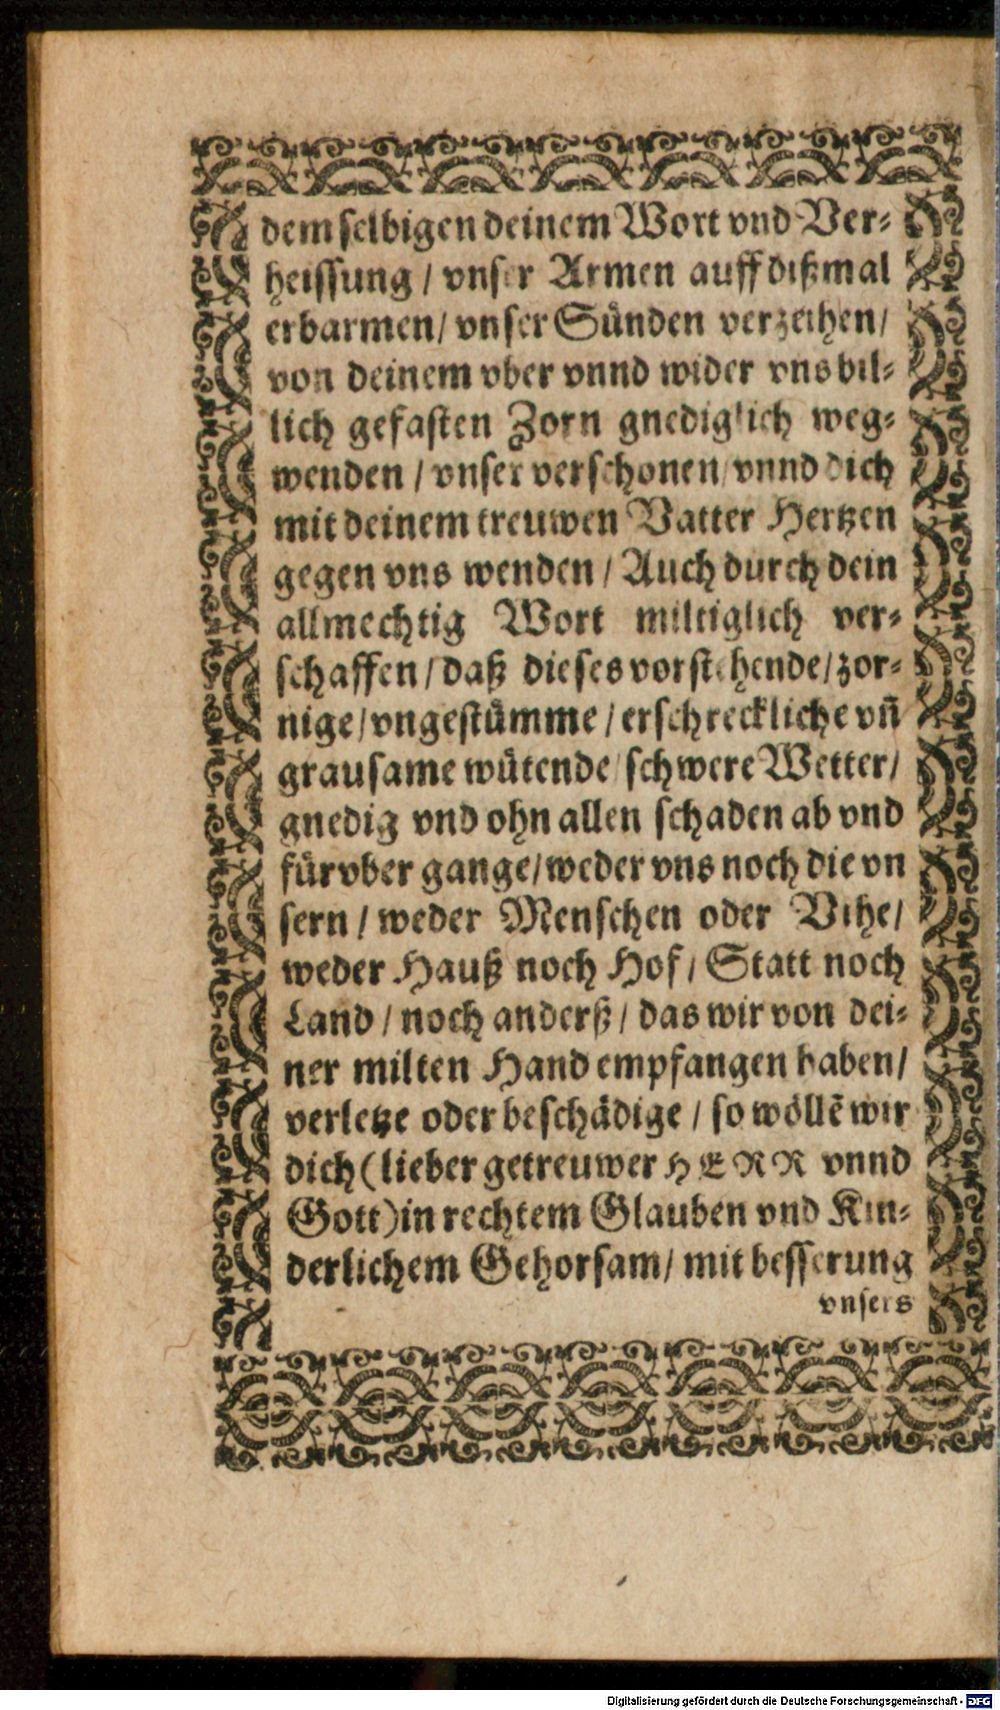 demselbigen deinem Wort vnd Ver-
heissung / vnser Armen auff dißmal
erbarmen / vnser Sünden verzeihen /
von deinem vber vnnd wider vns bil-
lich gefasten Zorn gnediglich weg-
wenden / vnser verschonen / vnnd dich
mit deinem treuwen Vatter Hertzen
gegen vns wenden / Auch durch dein
allmechtig Wort miltiglich ver-
schaffen / daß dieses vorstehende / zor-
nige / vngestümme / erschreckliche vn̄
grausame wütende / schwere Wetter /
gnedig vnd ohn allen schaden ab vnd
fürvber gange / weder vns noch die vn
sern / weder Menschen oder Vihe /
weder Hauß noch Hof / Statt noch
Land / noch anderß / das wir von dei-
ner milten Hand empfangen haben /
verletze oder beschädige / so wöllē wir
dich (lieber getreuwer HERR vnnd
Gott) in rechtem Glauben vnd Kin-
derlichem Gehorsam / mit besserung
vnsers
Digitalisierung gefördert durch die Deutsche Forschungsgemeinschaft - DFG